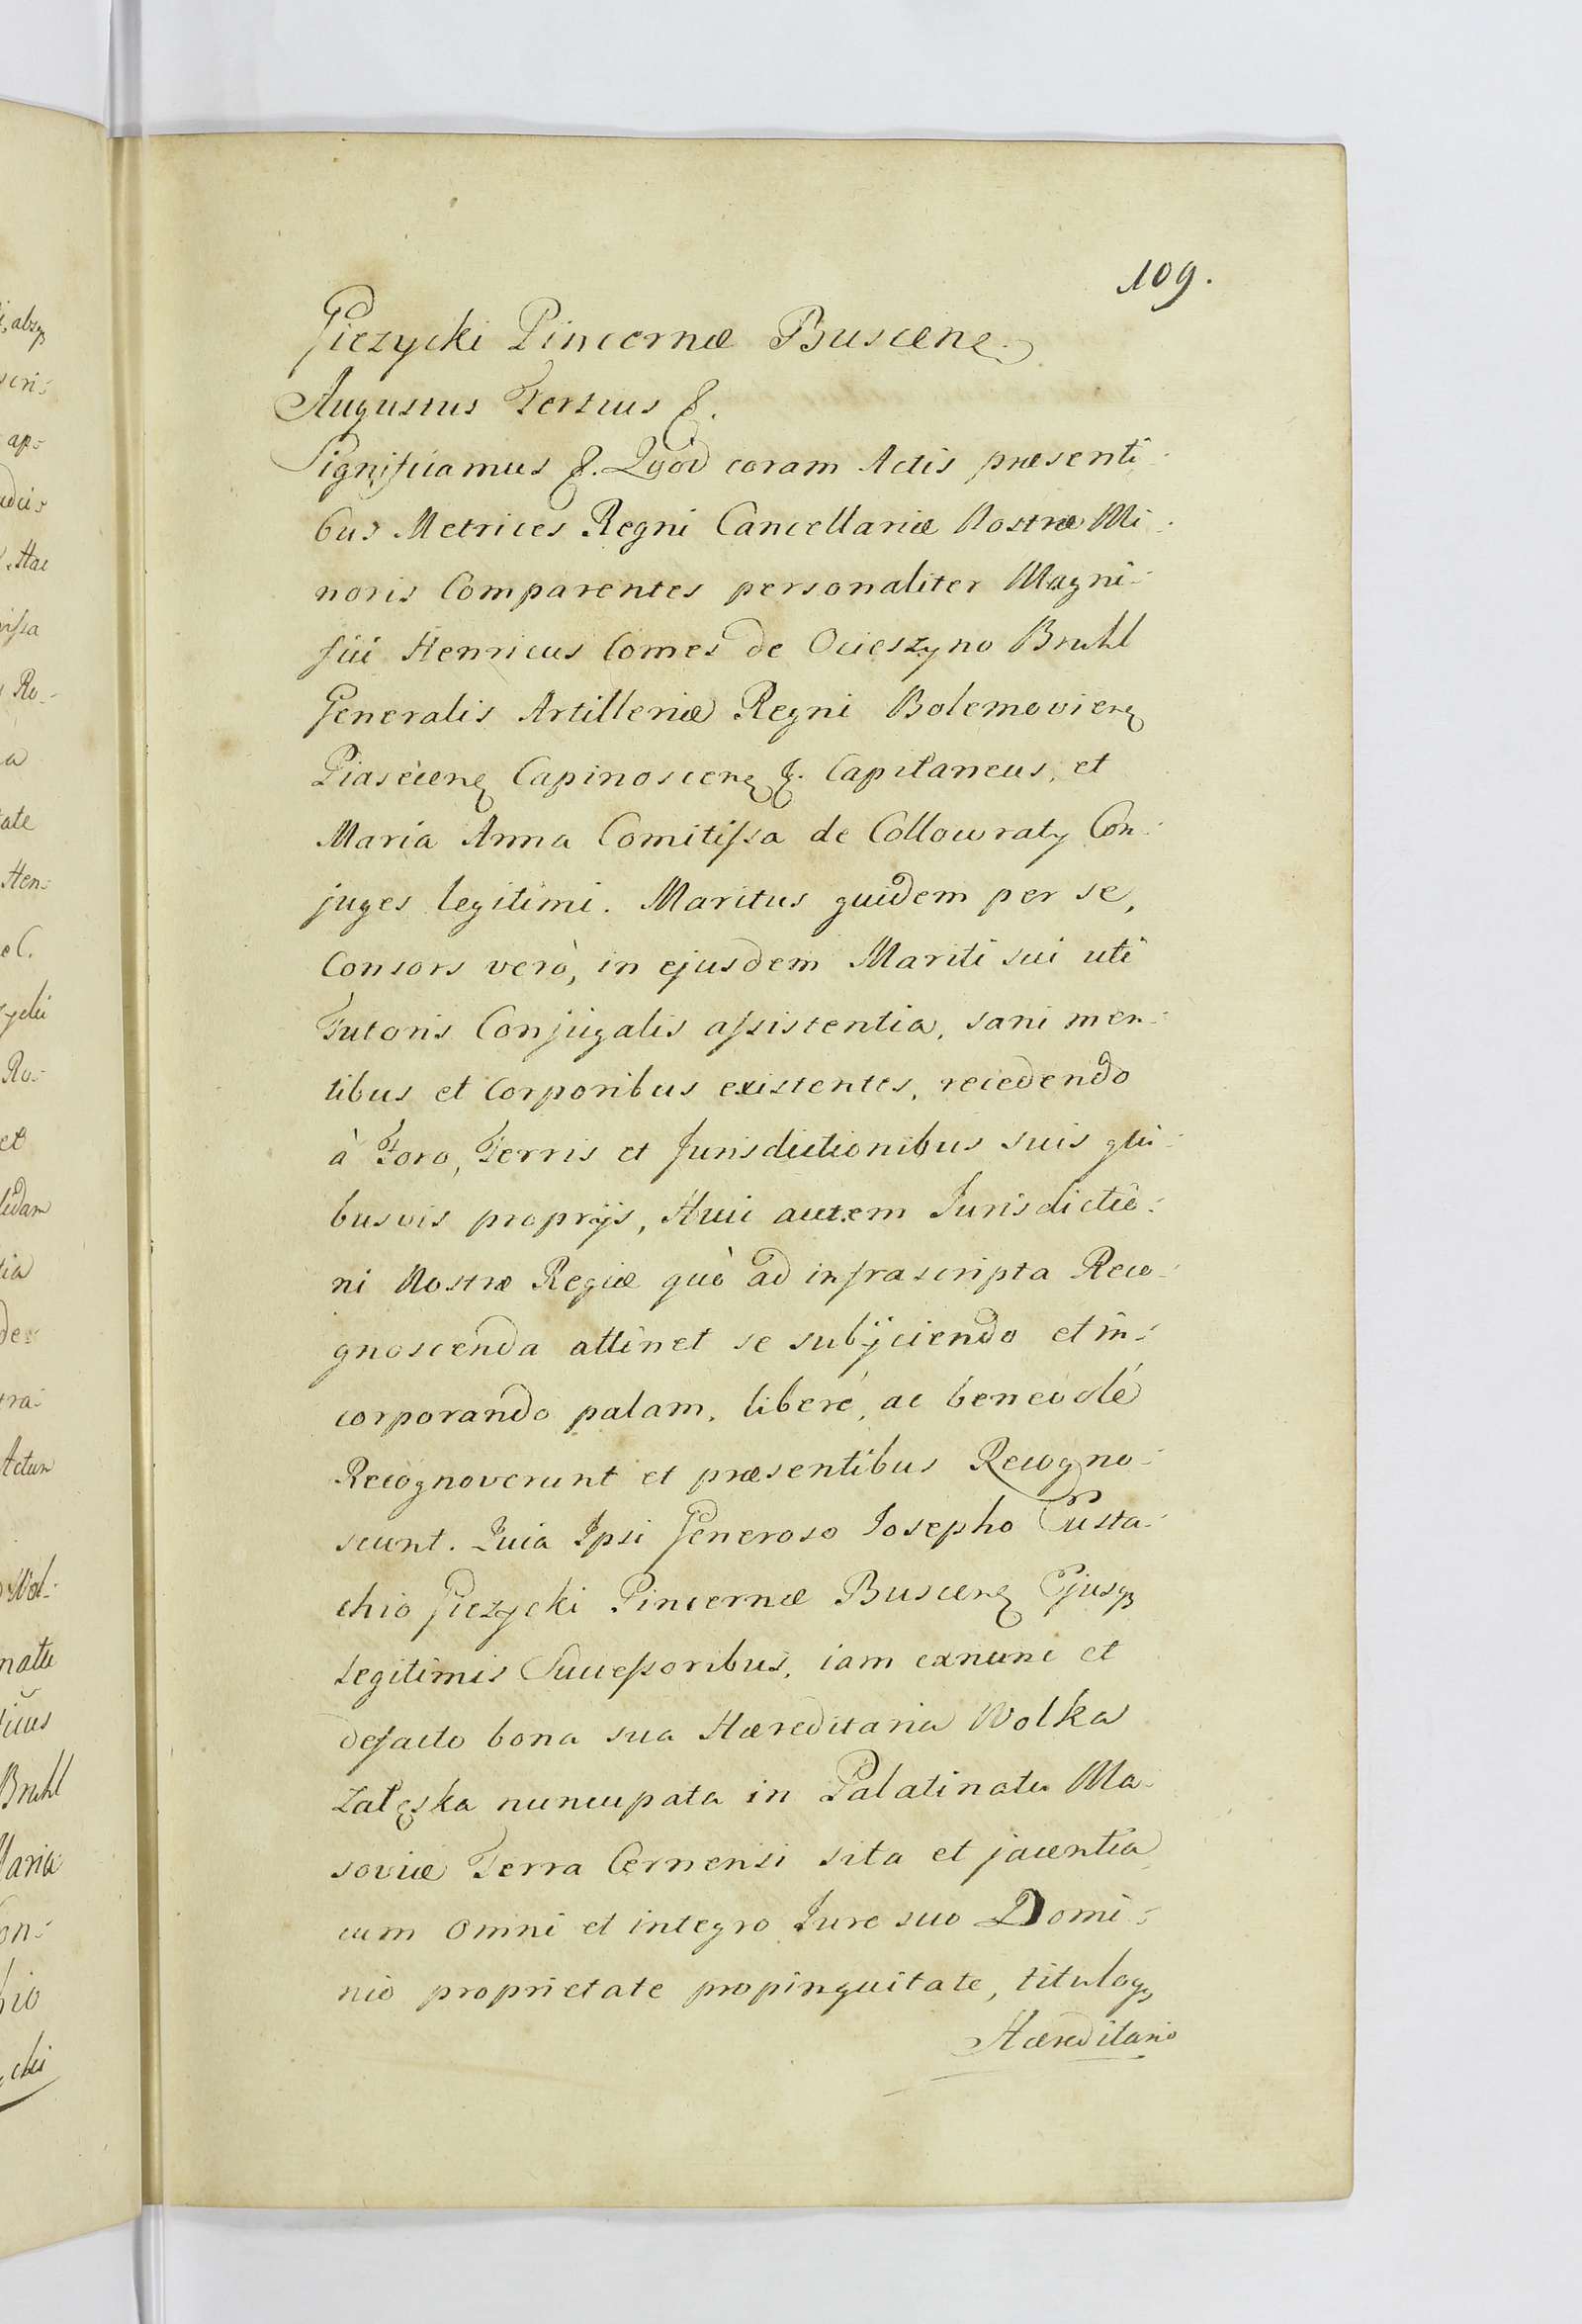 109.
Giezycki Pincernæ Buscenę
Augustus Tertius &.
Significamus &. Quod coram Actis præsenti-
bus Metrices Regni Cancellariæ Nostræ Mi-
noris Comparentes personaliter Magni-
fici Henricus Comes de Ocieszyno Bruhl
Generalis Artilleriæ Regni Bolemovienę
Piasecenę Capinoscenę &. Capitaneus, et
Maria Anna Comitissa de Collowraty Con-
juges legitimi. Maritus quidem per se,
Consors verò, in ejusdem Mariti sui uti
Tutoris Conjugalis assistentia, sani men-
tibus et Corporibus existentes, recedendo
à Foro, Terris et Jurisdictionibus suis qui-
busvis proprijs, Huic autem Jurisdictio-
ni Nostræ Regiæ quò ad infrascripta Reco-
gnoscenda attinet se subijciendo et in-
corporando palam, liberè, ac benevolè
Recognoverunt et præsentibus Recogno-
scunt. Quia Ipsi Generoso Josepho Eusta-
chio Giezycki Pincernæ Buscenę Ejusq;
Legitimis Successoribus, iam exnunc et
defacto bona sua Hæreditaria Wolka
Załęska nuncupata in Palatinatu Ma-
soviæ Terra Cernensi sita et jacentia
cum omni et integro Jure suo Domi-
nio proprietate propinquitate, tituloq;
Hæreditario